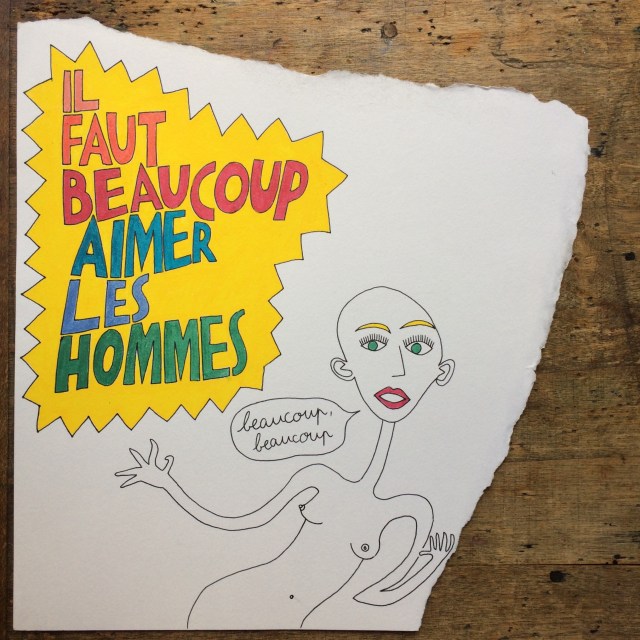 IL
FAUT
BEAUCOUP
AIMER
LES
HOMMES
beaucoup,
beaucoup